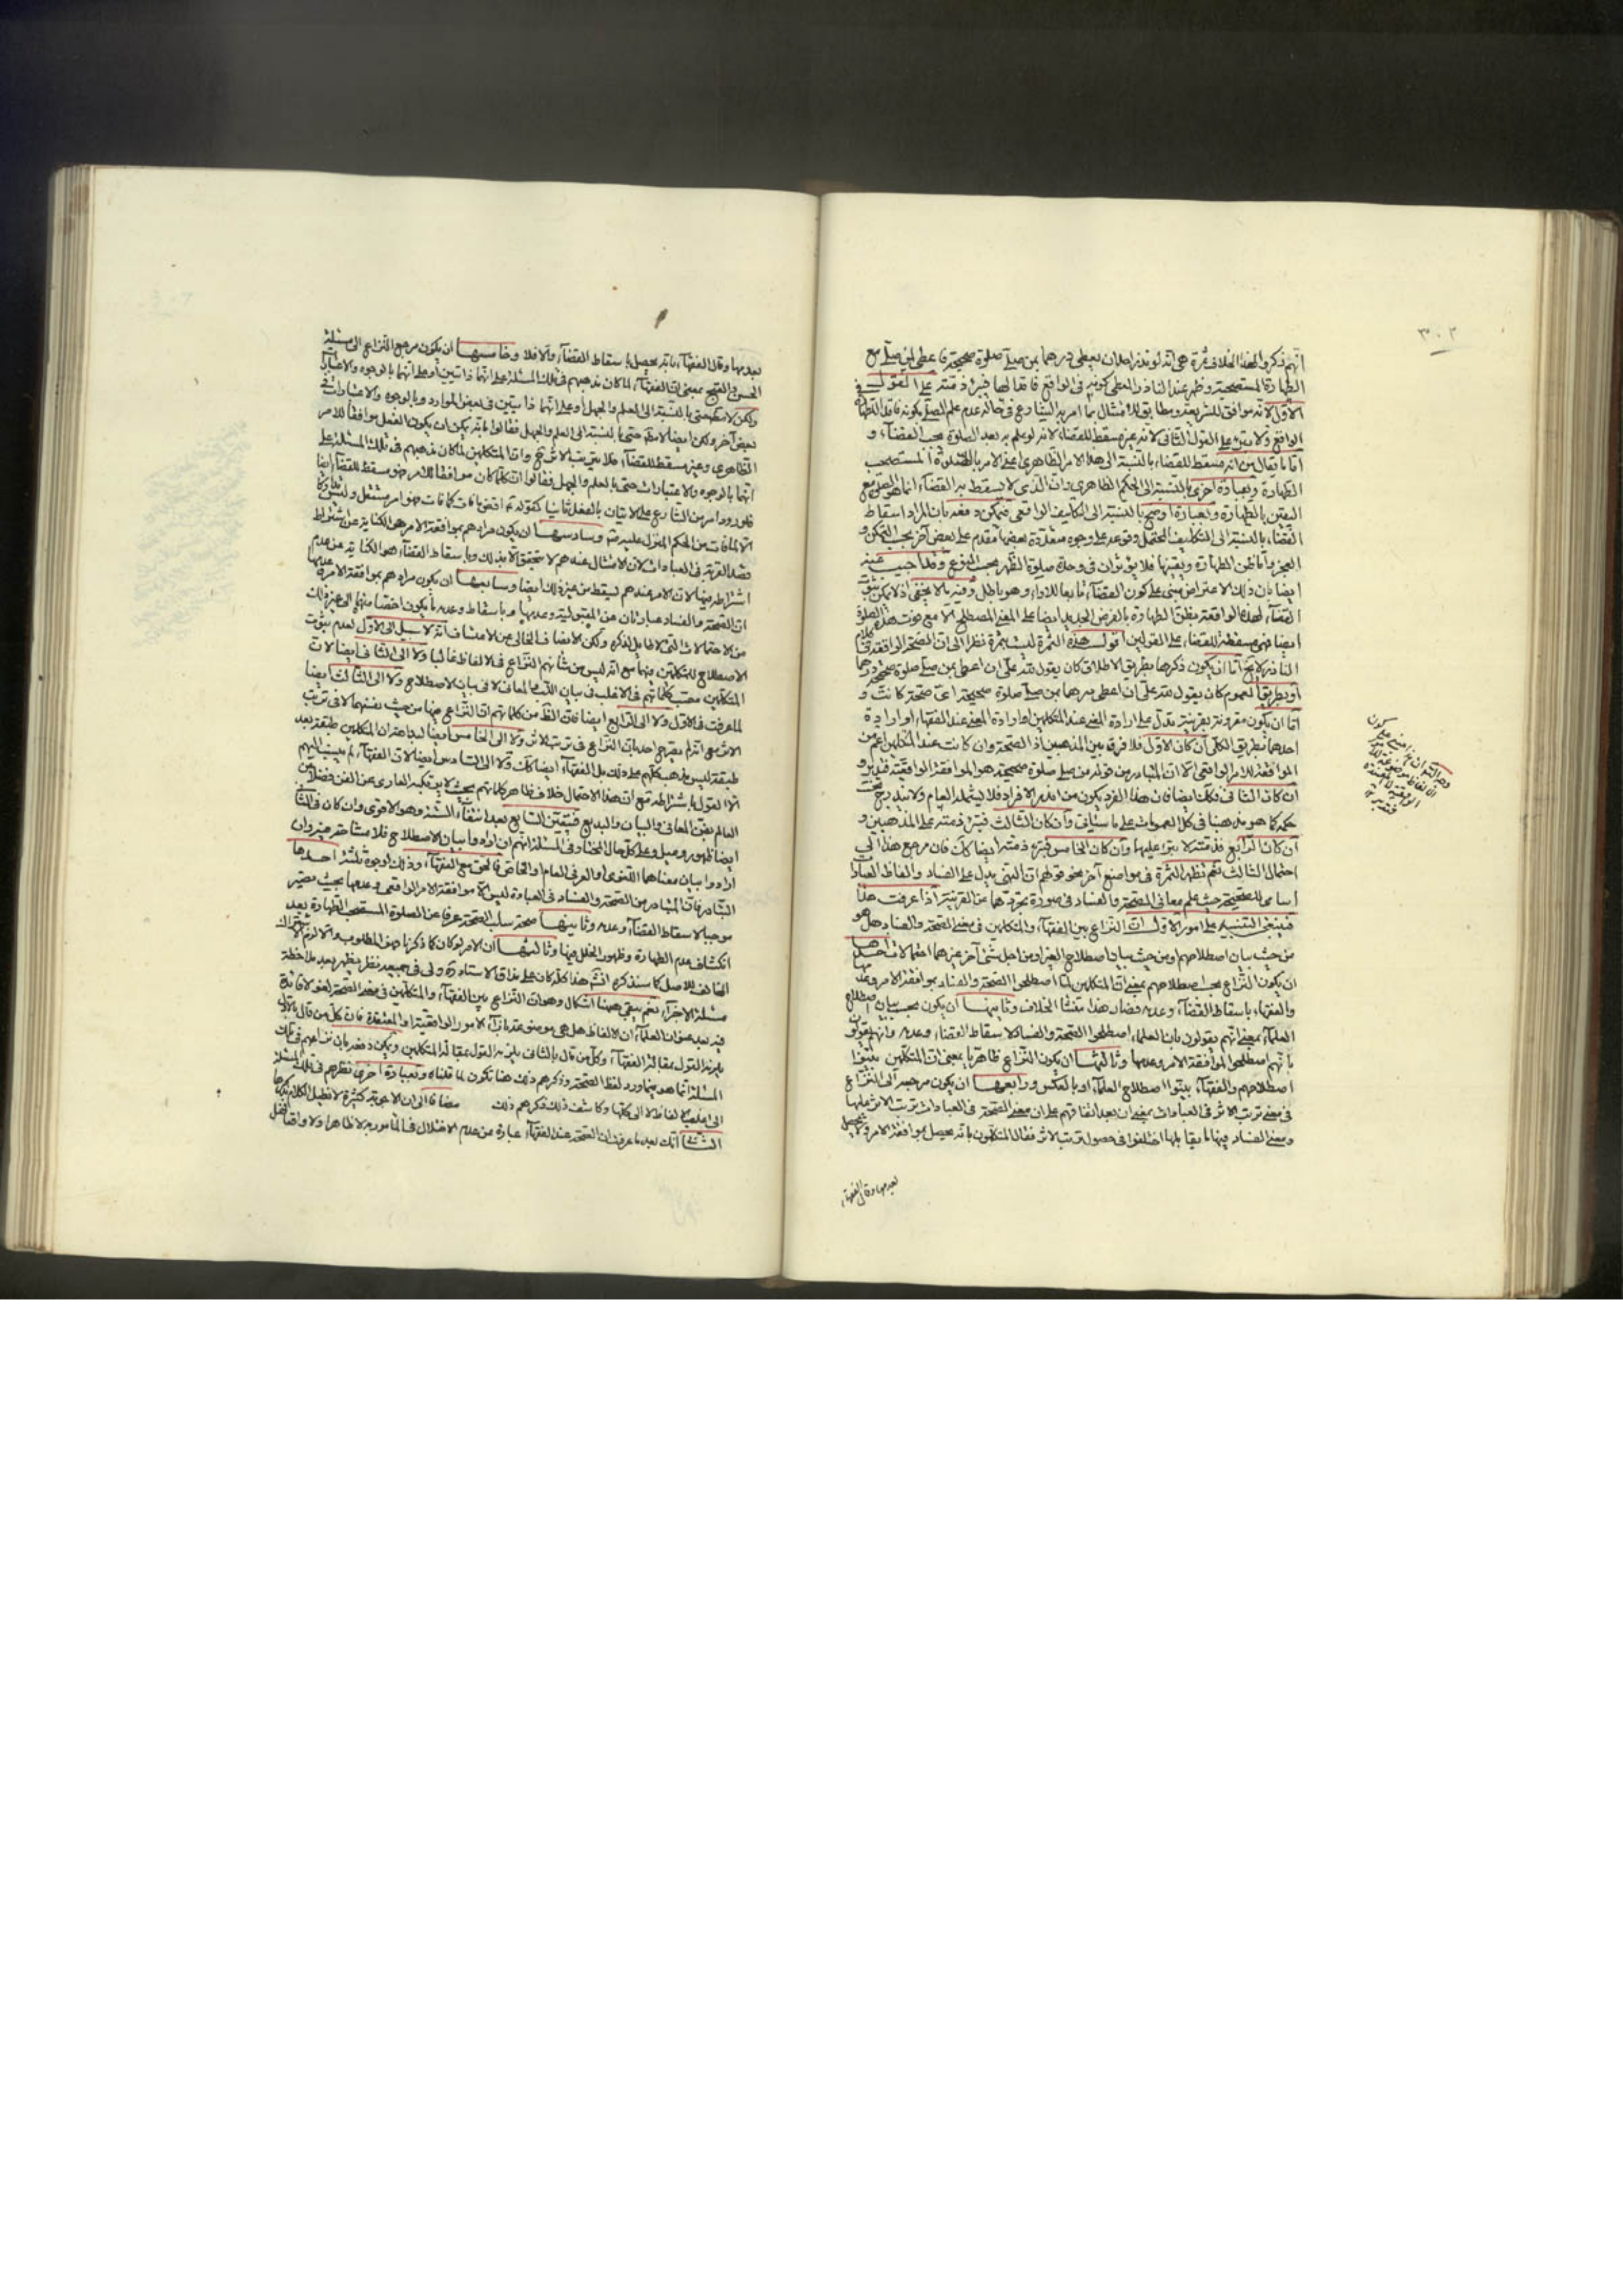 ٣٠٢
انهم ذكروا لهذا الخلاف ثمرة هى انه لو نذر احد ان يعطى درهما بمن صلى صلوة صحيحة فاعطى لمن صلى مع
الطهارة المستصحبة وظهر عند الناذر المعطى كونه فى الواقع فاقدا لها فبرئ ذمته على القول
الاول لانه موافق للشريعة ومطابق للامتثال بما امر به الشارع فى حاله عدم علم المصلى بكونه فاقد الطهارة فى
الواقع ولا يبرء على القول الثانى لانه غير مسقط للقضاء لانه لو علم به بعد الصلوة يجب القضاء و
اما ما يقال من انه مسقط للقضاء بالنسبة الى هذا الامر الظاهرى يعنى الامر بالصلوة المستصحب
الطهارة وبعبارة اخرى بالنسبة الى الحكم الظاهرى وان الذى لا يسقط به القضاء انما هو الصلوة مع
اليقين بالطهارة وبعبارة اوضح بالنسبة الى التكليف الواقعى فيمكن دفعه بان المراد اسقاط
القضاء بالنسبة الى التكليف المحتمل وقوعه على وجوه متعددة بعضها مقدم على بعض آخر بحسب التمكن و
العجز واما ظن الطهارة ويقينها فلا يؤثران فى وحدة صلوة الظهر بحسب النوع وقد اجيب عنه
ايضا بان ذلك الاعتراض مبنى على كون القضاء تابعا للاداء وهو باطل وفيه ما لا يخفى اذ لا يمكن ثبوت
القضاء لهذه الواقعة بظن الطهارة بالفرض الجديد ايضا على المعنى المصطلح الا مع فوت هذه الصلوة
ايضا فهى مسقطة للقضاء على القولين اقول هذه الثمرة ليست بثمرة نظرا الى ان الصحة الواقعة فى كلام
الناذر لا يخ اما ان يكون ذكرها بطريق الاطلاق كان يقول لله على ان اعطى بمن صلى صلوة صحيحة درهما
او بطريق العموم كان يقول لله على ان اعطى درهما بمن صلى صلوة صحيحة اى صحة كانت و
اما ان يكون مقرونة بقرينة تدل على ارادة المعنى عند المتكلمين او ارادة المعنى عند الفقهاء او ارادة
احدهما بطريق الكلى ان كان الاول فلا فرق بين المذهبين اذ الصحة وان كانت عند المتكلمين اعم من
الموافقة للامر الواقعى الا ان المتبادر من قوله من صلى صلوة صحيحة هو الموافقة الواقعية فتدبر و
ان كان الثانى فكك ايضا فان هذا الفرد يكون من اندر الافراد فلا يشمله العام ولا يندرج تحت
حكمه كما هو مذهبنا فى كل العمومات على ما سيأتى وان كان الثالث فيبرء ذمته على المذهبين و
ان كان الرابع فذمته لا يبرء عليهما وان كان الخامس فيبرء ذمته ايضا كك فان مرجع هذا الى
احتمال الثالث نعم تظهر الثمرة فى مواضع آخر نحو قولهم ان النهى يدل على الفساد والفاظ العبادات
اسامى للصحيحة حيث علم معانى الصحة والفساد فى صورة تجردهما عن القرينة اذا عرفت هذا
فينبغى التنبيه على امور الاول ان النزاع بين الفقهاء والمتكلمين فى معنى الصحة والفساد هل هو
من حيث بيان اصطلاحهم او من حيث بيان اصطلاح الغير او من اجل شئ آخر غيرهما احتمالات احدها
ان يكون النزاع بحسب اصطلاحهم بمعنى ان المتكلمين لما اصطلحوا الصحة والفساد بموافقة الامر وعدمها
والفقهاء باسقاط القضاء وعدمه فصار هذا منشأ الخلاف وثانيها ان يكون بحسب بيان اصطلاح
العلماء بمعنى انهم يقولون بان العلماء اصطلحوا الصحة والفساد لاسقاط القضاء وعدمه وانهم يقولون
بانهم اصطلحوا لموافقة الامر وعدمها وثالثها ان يكون النزاع ظاهريا بمعنى ان المتكلمين بينوا
اصطلاحهم والفقهاء بينوا اصطلاح العلماء او بالعكس ورابعها ان يكون مرجعه الى النزاع
فى معنى ترتب الاثر فى العبادات بمعنى ان بعد اتفاقهم على ان معنى الصحة فى العبادات ترتب الاثر عليها
ومعنى الفساد فيها ما يقابلها اختلفوا فى حصول ترتب الاثر فقال المتكلمون بانه يحصل بموافقة الامر ولا يحصل
بعدمها وقال الفقهاء
بعدمها وقال الفقهاء بانه يحصل باسقاط القضاء والا فلا وخامسها ان يكون مرجع النزاع الى مسئلة
الحسن والقبح بمعنى ان الفقهاء لما كان مذهبهم فى تلك المسئلة على انهما ذاتيين او على انهما بالوجوه والاعتبارات
ولكن لا مطلقا حتى بالنسبة الى العلم والجهل او على انهما ذاتيتين فى بعض الموارد وبالوجوه والاعتبارات فى
بعض آخر ولكن ايضا لا مطلقا حتى بالنسبة الى العلم والجهل فقالوا بانه يمكن ان يكون الفعل موافقا للامر
الظاهرى وغير مسقط للقضاء فلا يترتب الاثر ح وان المتكلمين لما كان مذهبهم فى تلك المسئلة على
انهما بالوجوه والاعتبارات حتى بالعلم والجهل فقالوا ان كلما كان موافقا للامر فهو مسقط للقضاء ايضا
فلو ورد امر من الشارع على الاتيان بالفعل ثانيا كقوله اقض ما فات كما فات فهو امر مستقل وليس تداركا
لما فات من الحكم المعول عليه وسادسها ان يكون مرادهم بموافقة الامر هى الكناية عن اشتراط
قصد القربة فى العبادات لان الامتثال عندهم لا يتحقق الا بذلك وباسقاط القضاء هو الكناية عن عدم
اشتراطه فيها لان الامر عندهم يسقط من غير ذلك ايضا وسابعها ان يكون مرادهم بموافقة الامر وعدمها
ان الصحة والفساد عبارتان عن المقبولية وعدمها وباسقاط وعدمه ما يكون اخص منهما الى غير ذلك
من الاحتمالات التى لا طايل لذكره ولكن الانصاف الخالى عن الاعتساف انه لا سبيل الى الاول لعدم ثبوت
الاصطلاح للمتكلمين فيها مع انه ليس من شأنهم النزاع فى الالفاظ غالبا ولا الى الثانى ايضا لان
المتكلمين مصب كلماتهم فى الاغلب فى بيان اللب والمعانى لا فى بيان الاصطلاح ولا الى الثالث ايضا
لما عرفت فى الاول ولا الى الرابع ايضا فان الظ من كلماتهم ان النزاع فيها من حيث نفسهما لا فى ترتب
الاثر مع انه لم يصرح احد بان النزاع فى ترتب الاثر ولا الى الخامس ايضا لبداهة ان المتكلمين طبقة بعد
طبقة ليس مذهب كلهم على ذلك بل الفقهاء ايضا كك ولا الى السادس ايضا لان الفقهاء لم ينسب اليهم
القول باشتراطه مع ان هذا الاحتمال خلاف ظاهر كلماتهم بحيث لا يرتكبه العارى عن الفن فضلا عن
العالم بفن المعانى والبيان والبديع فتعين السابع بعد انتفاء الستة وهو الاقوى وان كان فى الثانى
ايضا ظهور وميل وعلى كل حال المختار فى المسئلة انهم ان ارادوا بيان الاصطلاح فلا مشاحة فيه وان
ارادوا بيان معناهما اللغوى او العرفى العام او الخاص فالحق مع الفقهاء وذلك لوجوه ثلثة احدها
التبادر فان المتبادر من الصحة والفساد فى العبادة ليس الا موافقة الامر الواقعى وعدمها بحيث يصير
موجبا لاسقاط القضاء وعدمه وثانيها صحة سلب الصحة عرفا عن الصلوة المستصحب الطهارة بعد
انكشاف عدم الطهارة وظهور الخلل فيها وثالثها ان الامر لو كان كما ذكرنا فهو المطلوب والا لزم الاشتراك
المخالف للاصل كما سنذكره انش هذا كله كان على مذاق الاستاد ولى فى جميعه نظر يظهر بعد ملاحظة
مسئلة الاجزاء نعم يبقى ههنا اشكال وهو ان النزاع بين الفقهاء والمتكلمين فى معنى الصحة لغو لا فائدة
فيه بعد عنوان العلماء ان الالفاظ هل هى موضوعة بازاء الامور الواقعية او المعتقدة فان كل من قال بالاول
يلزمه القول بمقالة الفقهاء وكل من قال بالثانى يلزمه القول بمقالة المتكلمين ويمكن دفعه بان نزاعهم فى تلك
المسئلة انما هو فيما ورد لفظ الصحة وذكرهم ذلك هنا تكون لما قلناه وبعبارة اخرى نظرهم فى تلك المسئلة
الى اغلب الالفاظ لا الى كلها وكاشف ذلك ذكرهم ذلك مضافا الى ان الاجوبة كثيرة لا نطيل الكلام بذكرها
الثانى انك بعد ما عرفت ان الصحة عند الفقهاء عبارة عن عدم الاختلال فى المأمور به لا ظاهرا ولا واقعا